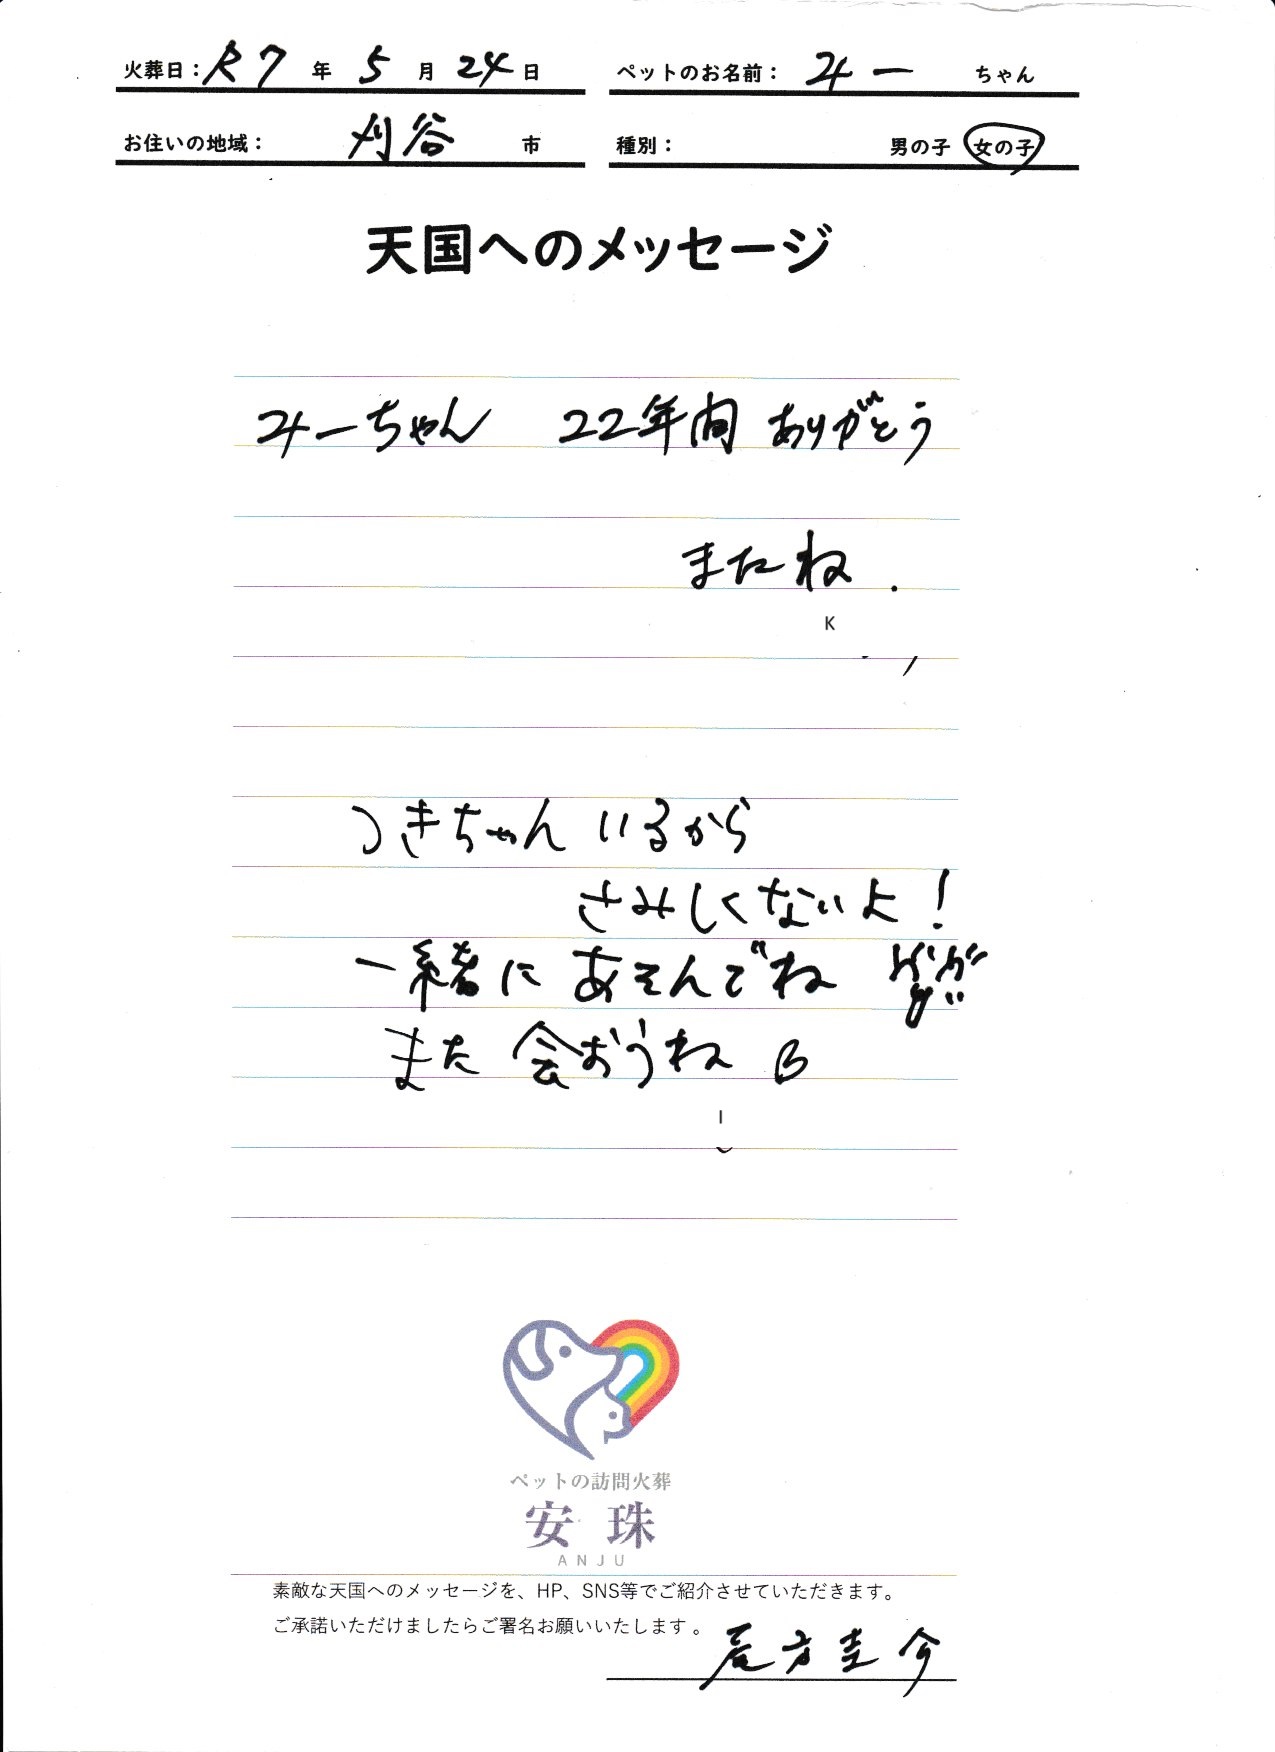 火葬日：R7年 5月 24日
ペットのお名前： みー ちゃん
お住いの地域： 刈谷 市
種別： 男の子 女の子
天国へのメッセージ
みーちゃん 22年間 ありがとう
またね.
K
つきちゃん いるから
さみしくないよ！
一緒に あそんでね
また 会おうね
I
ペットの訪問火葬
安珠
ANJU
素敵な天国へのメッセージを、HP、SNS等でご紹介させていただきます。
ご承諾いただけましたらご署名お願いいたします。
尾方圭介